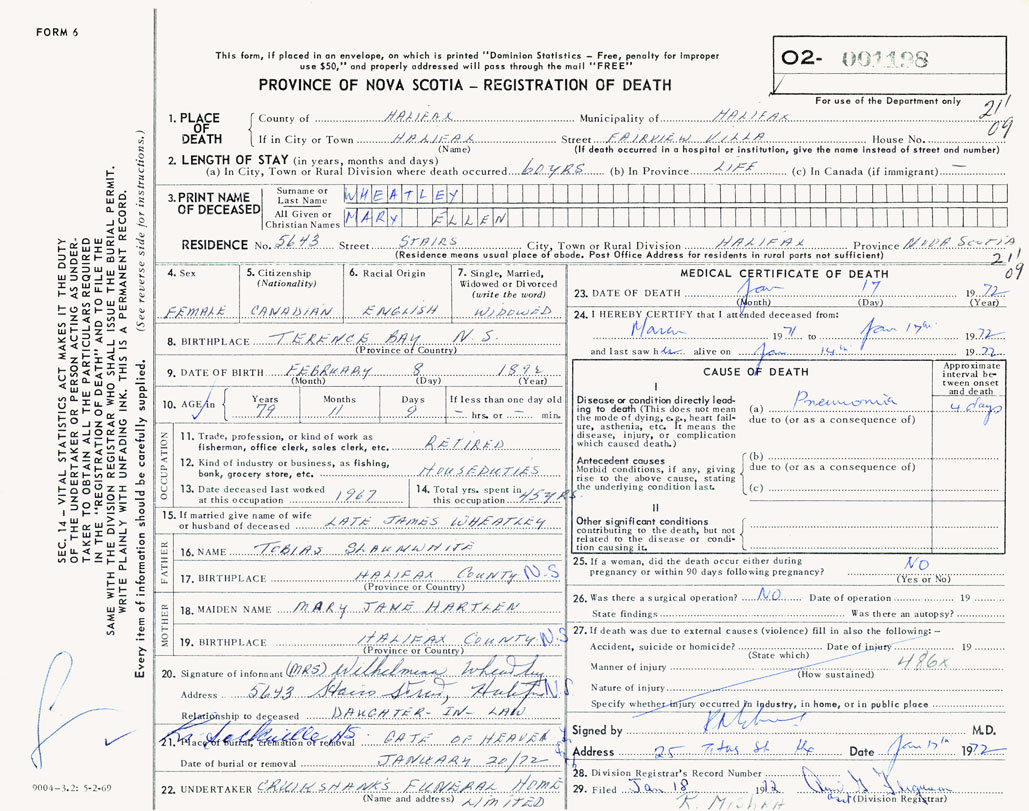 FORM 6
This form, if placed in an envelope, on which is printed "Dominion Statistics – Free, penalty for improper
use $50," and properly addressed will pass through the mail "FREE"
PROVINCE OF NOVA SCOTIA – REGISTRATION OF DEATH
O2- 001198
For use of the Department only
211
09
1. PLACE OF DEATH
County of HALIFAX Municipality of HALIFAX
If in City or Town HALIFAX Street FAIRVIEW VILLA House No.
(Name) (If death occurred in a hospital or institution, give the name instead of street and number)
2. LENGTH OF STAY (in years, months and days)
(a) In City, Town or Rural Division where death occurred 60 YRS (b) In Province LIFE (c) In Canada (if immigrant) —
3. PRINT NAME OF DECEASED
Surname or Last Name WHEATLEY
All Given or Christian Names MARY ELLEN
RESIDENCE No. 5643 Street STAIRS City, Town or Rural Division HALIFAX Province NOVA SCOTIA
(Residence means usual place of abode. Post Office Address for residents in rural parts not sufficient)
211
09
4. Sex FEMALE
5. Citizenship (Nationality) CANADIAN
6. Racial Origin ENGLISH
7. Single, Married, Widowed or Divorced (write the word) WIDOWED
8. BIRTHPLACE TERENCE BAY N.S.
(Province of Country)
9. DATE OF BIRTH FEBRUARY 8 1892
(Month) (Day) (Year)
10. AGE in Years 79 Months 11 Days 9 If less than one day old — hrs. or — min.
OCCUPATION
11. Trade, profession, or kind of work as
fisherman, office clerk, sales clerk, etc. RETIRED
12. Kind of industry or business, as fishing,
bank, grocery store, etc. HOUSEDUTIES
13. Date deceased last worked
at this occupation 1967
14. Total yrs. spent in
this occupation 45 YRS.
15. If married give name of wife
or husband of deceased LATE JAMES WHEATLEY
FATHER
16. NAME TOBIAS SLAUNWHITE
17. BIRTHPLACE HALIFAX COUNTY N.S
(Province or Country)
MOTHER
18. MAIDEN NAME MARY JANE HARTLEN
19. BIRTHPLACE HALIFAX COUNTY N.S
(Province or Country)
20. Signature of informant (MRS) Wilhelmina Wheatley
Address 5643 Stairs Street, Halifax N.S
Relationship to deceased DAUGHTER-IN-LAW
Sackville NS
21. Place of burial, cremation or removal GATE OF HEAVEN
Date of burial or removal JANUARY 20/72
22. UNDERTAKER CRUIKSHANKS FUNERAL HOME
(Name and address) LIMITED
MEDICAL CERTIFICATE OF DEATH
23. DATE OF DEATH Jan 17 1972
(Month) (Day) (Year)
24. I HEREBY CERTIFY that I attended deceased from:
March 1971 to Jan 17th 1972
and last saw her alive on Jan 14th 1972
CAUSE OF DEATH
Approximate interval between onset and death
I
Disease or condition directly leading to death (This does not mean the mode of dying, e.g., heart failure, asthenia, etc. It means the disease, injury, or complication which caused death.)
(a) Pneumonia 4 days
due to (or as a consequence of)
Antecedent causes
Morbid conditions, if any, giving rise to the above cause, stating the underlying condition last.
(b)
due to (or as a consequence of)
(c)
II
Other significant conditions
contributing to the death, but not related to the disease or condition causing it.
25. If a woman, did the death occur either during
pregnancy or within 90 days following pregnancy? NO
(Yes or No)
26. Was there a surgical operation? NO Date of operation 19
State findings Was there an autopsy?
27. If death was due to external causes (violence) fill in also the following: –
Accident, suicide or homicide? Date of injury 19
(State which)
486x
Manner of injury
(How sustained)
Nature of injury
Specify whether injury occurred in industry, in home, or in public place
Signed by M.D.
Address 25 Titus St Hx Date Jan 17th 1972
28. Division Registrar's Record Number
29. Filed Jan 18 1972
(Division Registrar)
SEC. 14 – VITAL STATISTICS ACT MAKES IT THE DUTY
OF THE UNDERTAKER OR PERSON ACTING AS UNDER-
TAKER TO OBTAIN ALL THE PARTICULARS REQUIRED
IN THE "REGISTRATION OF DEATH" AND TO FILE THE
SAME WITH THE DIVISION REGISTRAR WHO SHALL ISSUE THE BURIAL PERMIT.
WRITE PLAINLY WITH UNFADING INK. THIS IS A PERMANENT RECORD.
Every item of information should be carefully supplied. (See reverse side for instructions.)
9004-3.2: 5-2-69